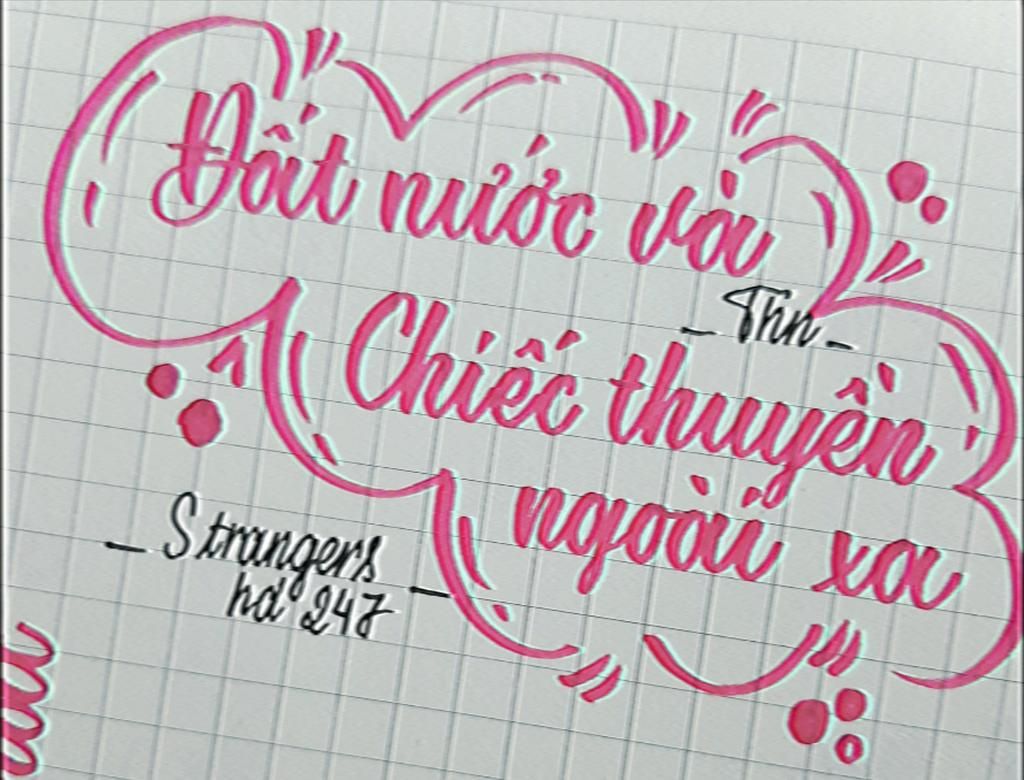 Đất nước và
- Thn -
Chiếc thuyền
ngoài xa
- Strangers
hd 247 -